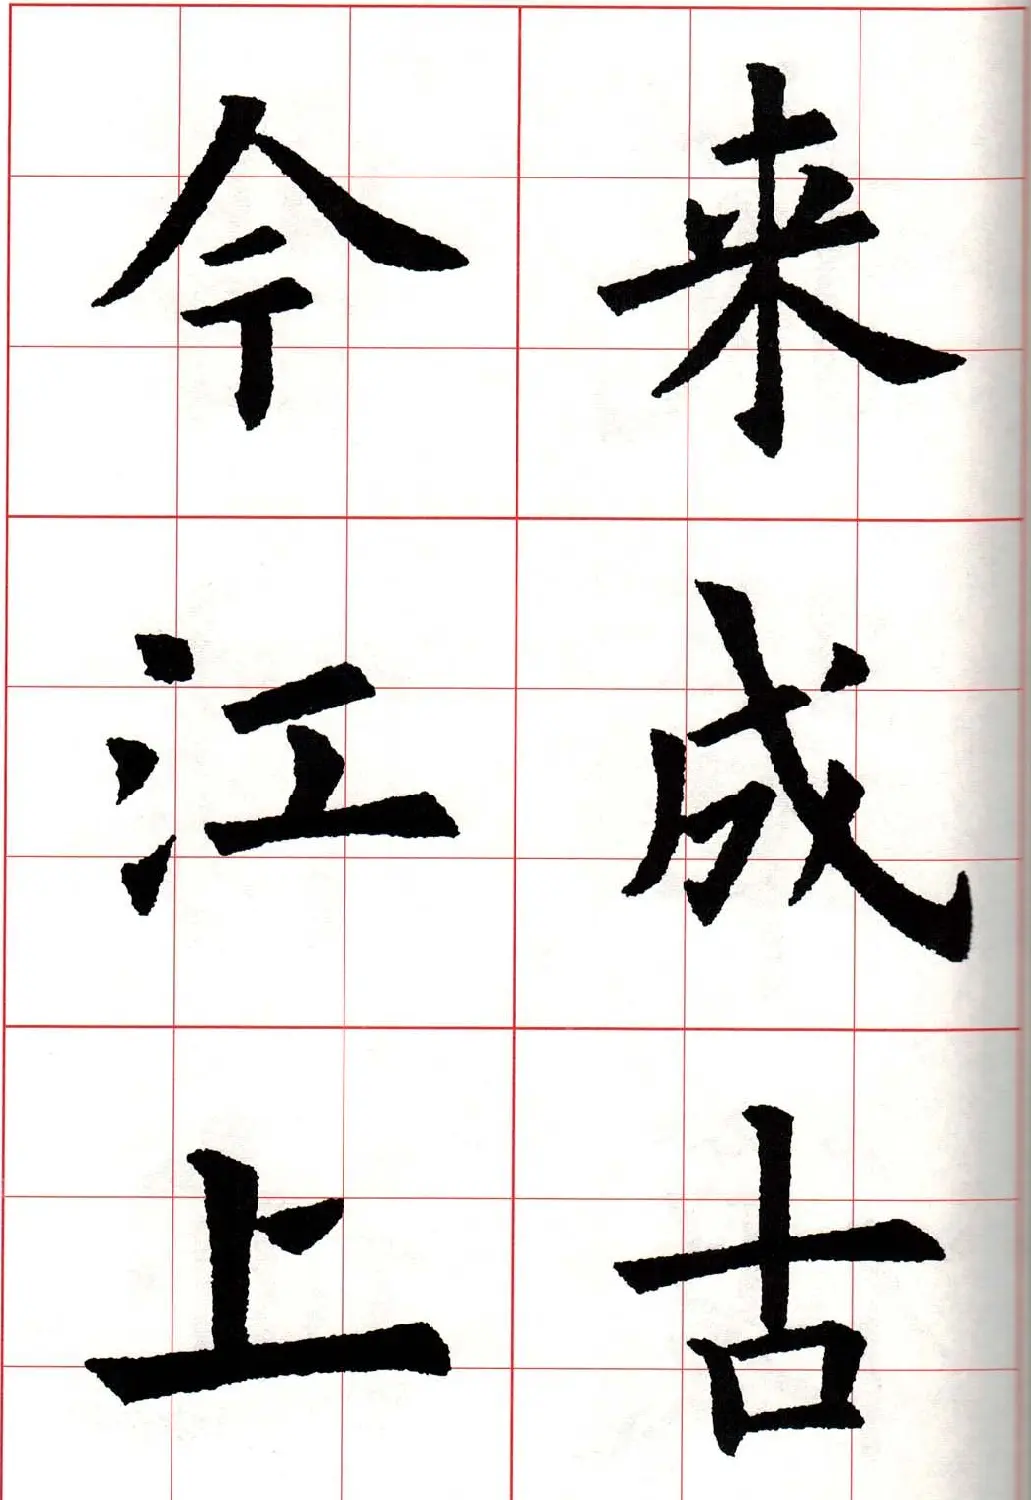 来成古
今江上